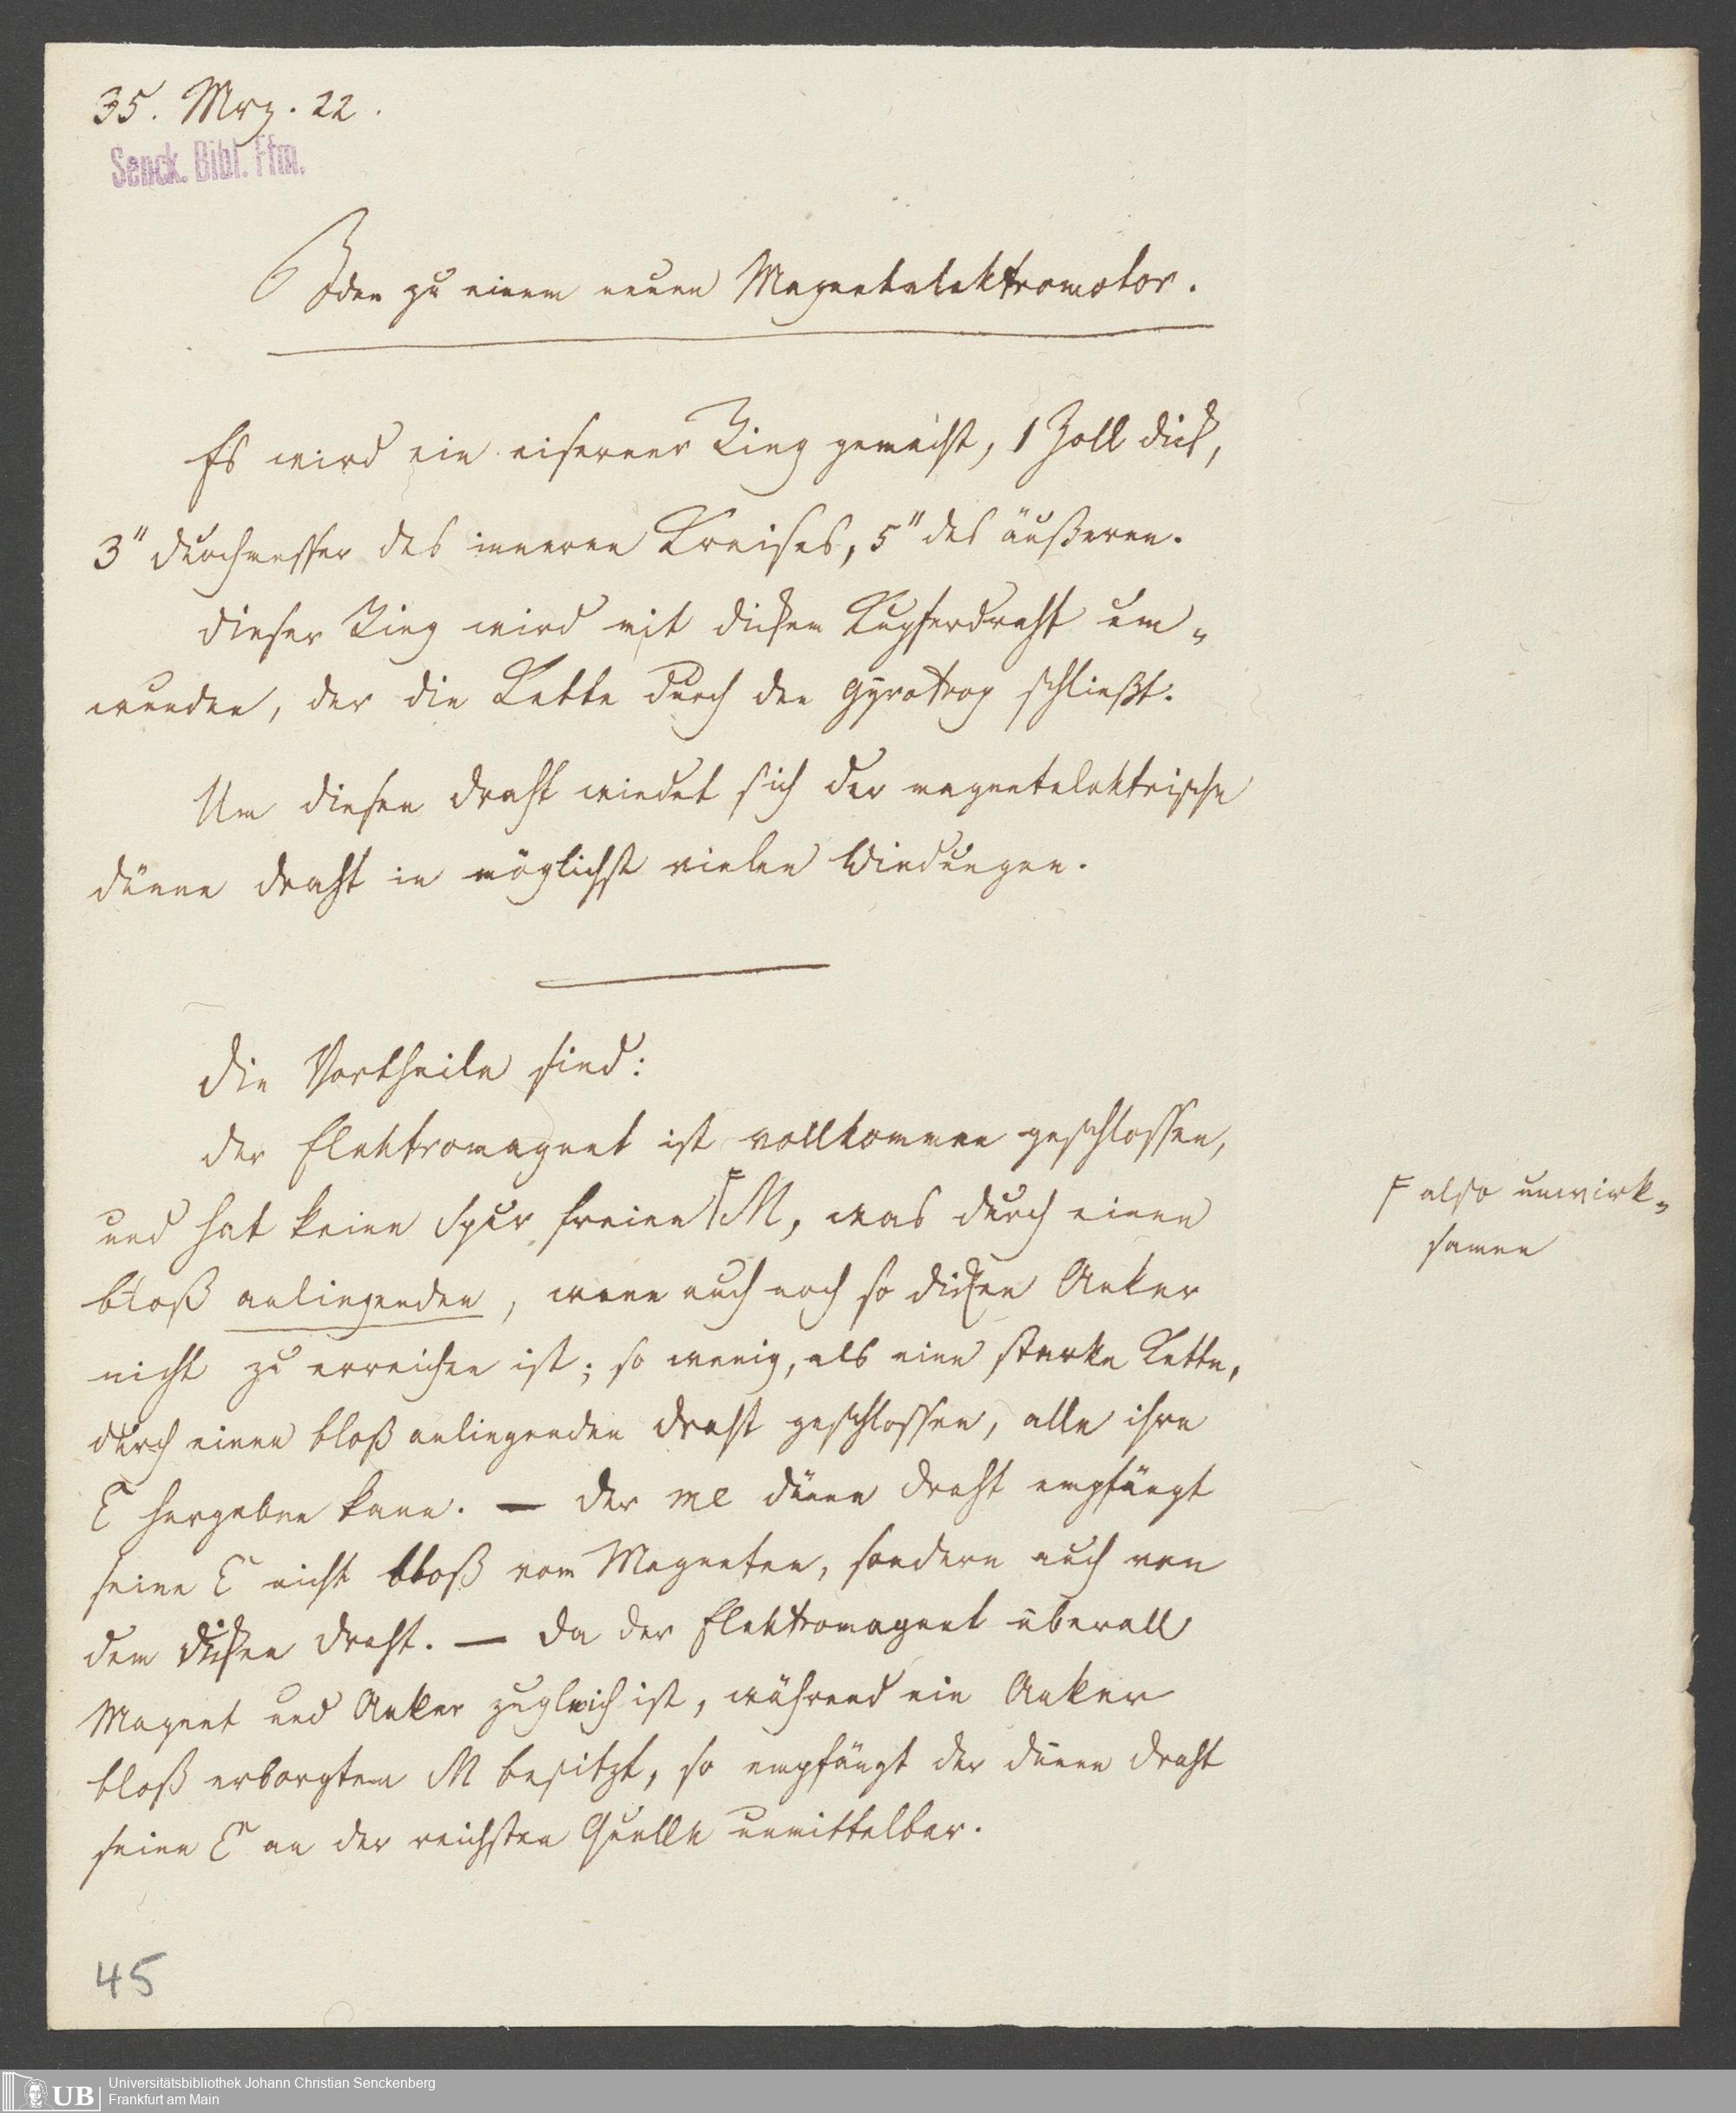 35. Mrz. 22.
Senck. Bibl. Ffm.
Idee zu einem neuen Magnetelektromotor.
Es wird ein eiserner Ring gemacht, 1 Zoll dick,
3" Durchmesser des inneren Kreises, 5" des äußeren.
Dieser Ring wird mit dickem Kupferdraht um-
wunden, der die Kette durch den Gyrotrop schließt.
Um diesen Draht windet sich der magnetelektrische
dünne Draht in möglichst vielen Windungen.
Die Vortheile sind:
Der Elektromagnet ist vollkommen geschlossen,
und hat keine Spur freien M, was durch einen
also unwirk-
samen
bloß anliegenden, wenn auch noch so dicken Anker
nicht zu erreichen ist; so wenig, als eine starke Kette,
durch einen bloß anliegenden Draht geschlossen, alle ihre
E hergeben kann. — Der me dünne Draht empfängt
seine E nicht bloß vom Magneten, sondern auch von
dem dicken Draht. — Da der Elektromagnet überall
Magnet und Anker zugleich ist, während ein Anker
bloß erborgten M besitzt, so empfängt der dünne Draht
seine E an der reichsten Quelle unmittelbar.
45
UB
Universitätsbibliothek Johann Christian Senckenberg
Frankfurt am Main